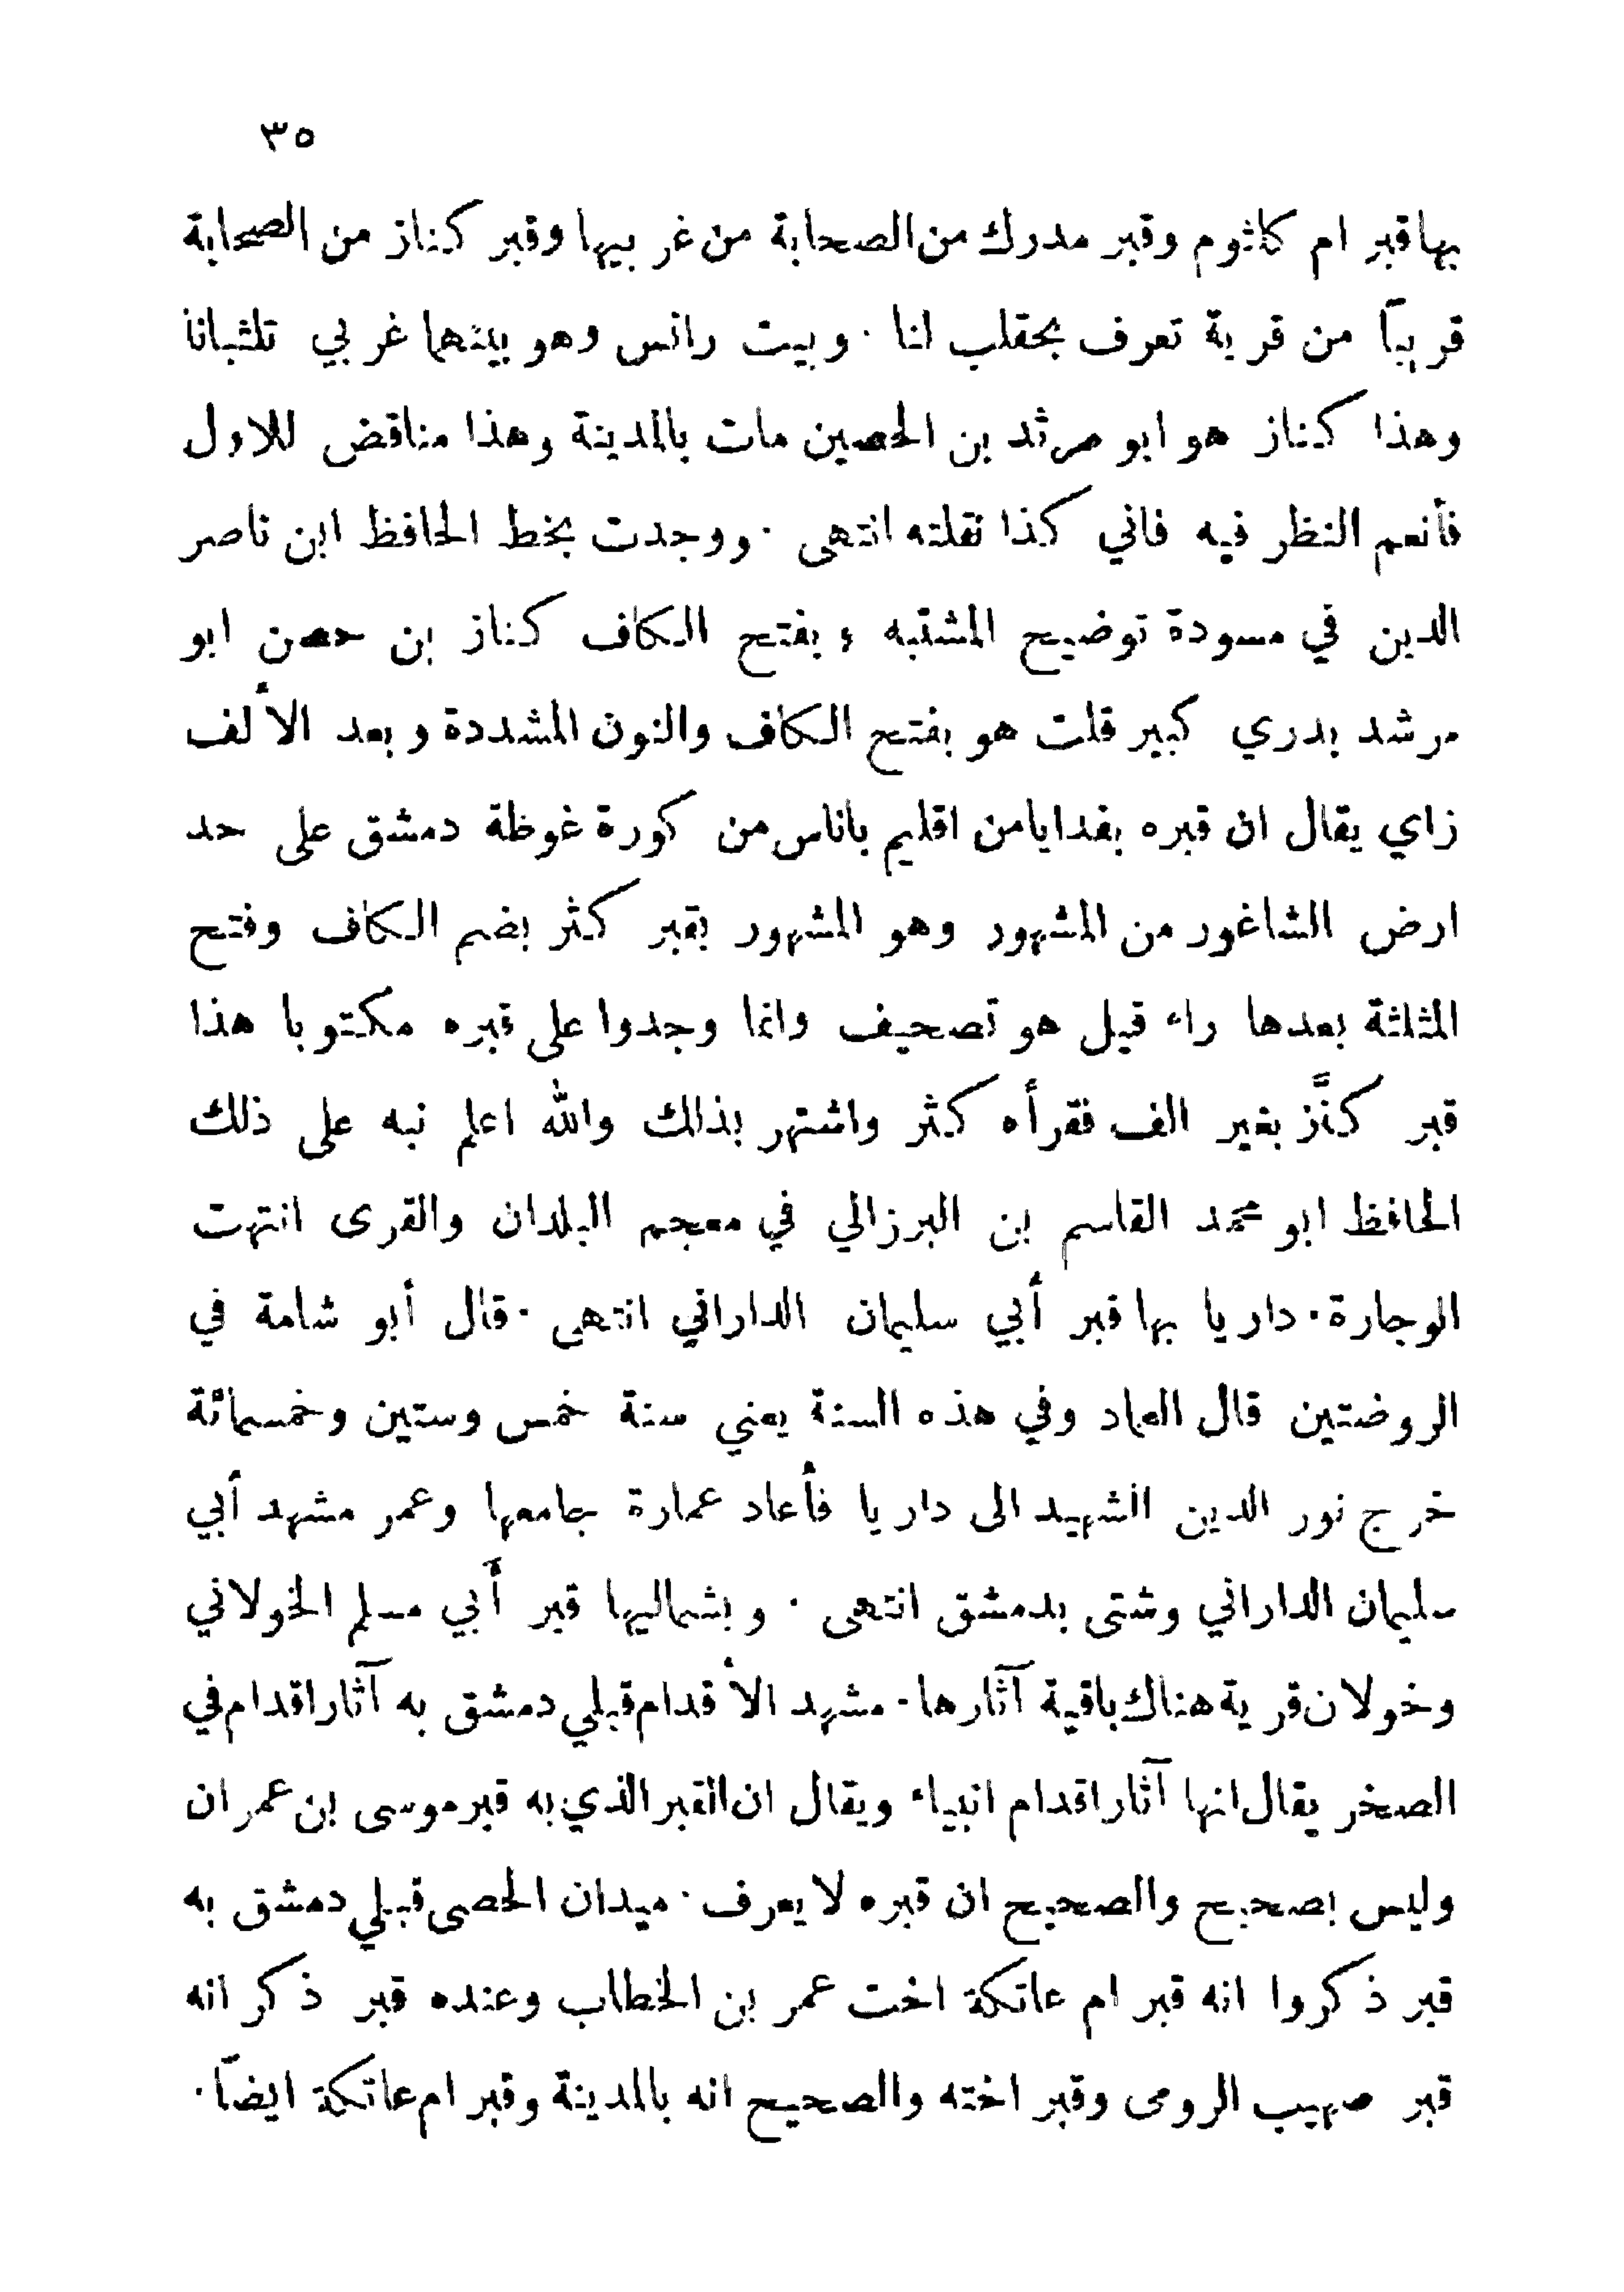 ٣٥
بها قبر ام كلثوم وقبر مدرك من الصحابة من غربيها وقبر كناز من الصحابة
قريباً من قرية تعرف بحقلب لنا . وبيت رانس وهو بينهما غربي تلثياثا
وهذا كناز هو ابو مرثد بن الحصين مات بالمدينة وهذا مناقض للاول
فأنعم النظر فيه فاني كذا نقلته انتهى . ووجدت بخط الحافظ ابن ناصر
الدين في مسودة توضيح المشتبه ، بفتح الكاف كناز بن حصن ابو
مرشد بدري كبير قلت هو بفتح الكاف والنون المشددة وبعد الألف
زاي يقال ان قبره بفدايا من اقليم باناس من كورة غوطة دمشق على حد
ارض الشاغور من المشهور وهو المشهور بقبر كثر بضم الكاف وفتح
المثلثة بعدها راء قيل هو تصحيف وانما وجدوا على قبره مكتوبا هذا
قبر كنَّز بغير الف فقرأه كثر واشتهر بذلك والله اعلم نبه على ذلك
الحافظ ابو محمد القاسم بن البرزالي في معجم البلدان والقرى انتهت
الوجارة . داريا بها قبر أبي سليمان الداراني انتهى . قال أبو شامة في
الروضتين قال العماد وفي هذه السنة يعني سنة خمس وستين وخمسمائة
خرج نور الدين الشهيد الى داريا فأعاد عمارة جامعها وعمر مشهد أبي
سليمان الداراني وشتى بدمشق انتهى . وبشماليها قبر أبي مسلم الخولاني
وخولان قرية هناك باقية آثارها . مشهد الأقدام قبلي دمشق به آثار اقدام في
الصخر يقال انها آثار اقدام انبياء ويقال ان القبر الذي به قبر موسى بن عمران
وليس بصحيح والصحيح ان قبره لا يعرف . ميدان الحصى قبلي دمشق به
قبر ذكروا انه قبر ام عاتكة اخت عمر بن الخطاب وعنده قبر ذكر انه
قبر صهيب الرومى وقبر اخته والصحيح انه بالمدينة وقبر ام عاتكة ايضاً .